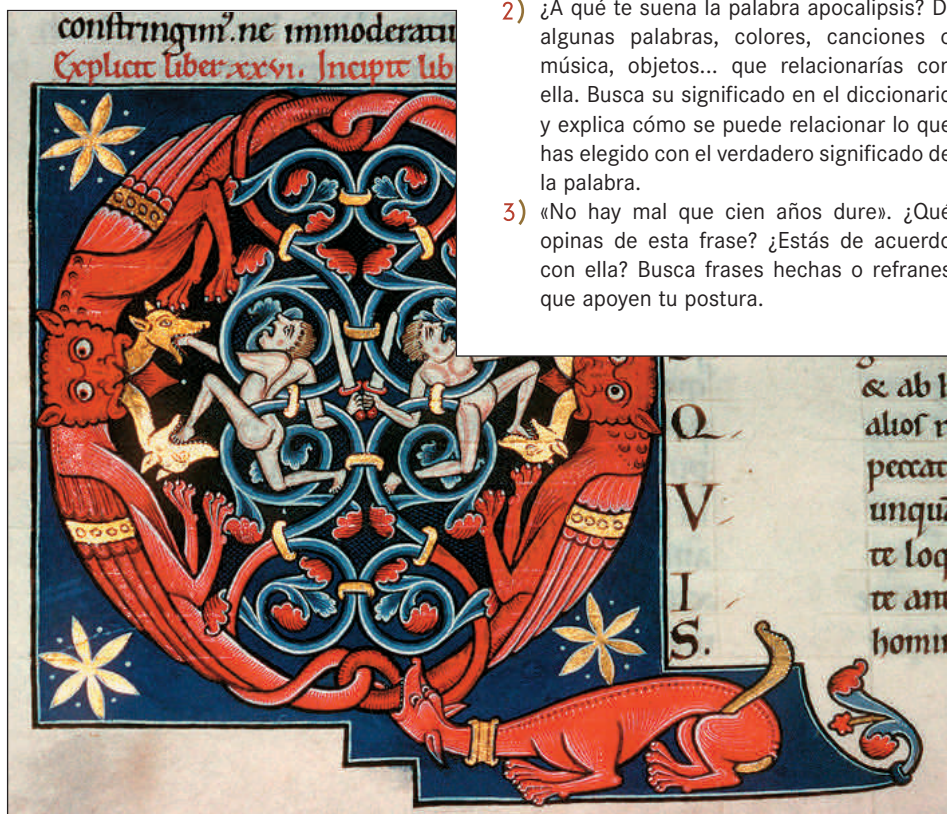 constringim'. ne immoderatu
Explicit liber xxvi. Incipit lib
2) ¿A qué te suena la palabra apocalipsis? D
algunas palabras, colores, canciones o
música, objetos... que relacionarías con
ella. Busca su significado en el diccionario
y explica cómo se puede relacionar lo que
has elegido con el verdadero significado de
la palabra.
3) «No hay mal que cien años dure». ¿Qué
opinas de esta frase? ¿Estás de acuerdo
con ella? Busca frases hechas o refranes
que apoyen tu postura.
& ab
Q alios
peccat
V unqua
te loq
I te
S. homin